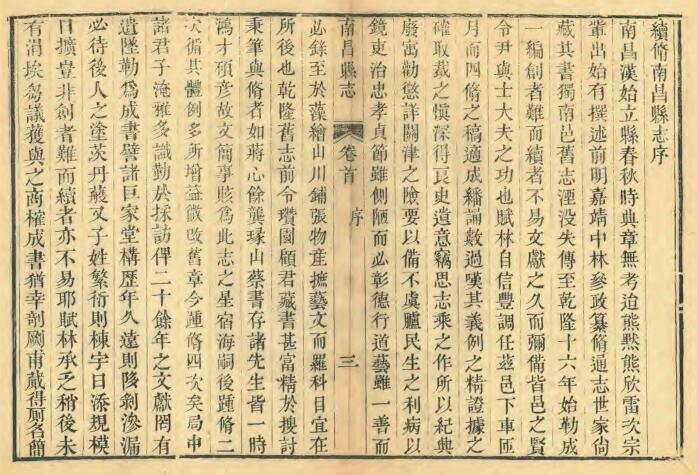 續脩南昌縣志序
南昌漢始立縣春秋時典章無考迨熊黙熊欣雷次宗
輩出始有撰述前明嘉靖中林參政纂脩通志世家尙
藏其書獨南邑舊志湮没失傳至乾隆十六年始勒成
一編創者難而續者不易文獻之久而彌備皆邑之賢
令尹與士大夫之功也賦林自信豐調任茲邑下車匝
月而四脩之稿適成繙誦數過嘆其義例之精證據之
確取裁之愼深得良吏遺意竊思志乘之作所以紀典
廢寓勸懲詳關津之險要以備不虞臚民生之利病以
鏡吏治忠孝貞節雖側陋而必彰德行道藝雖一善而
南昌縣志
卷首
序
三
必錄至於藻繪山川鋪張物産摭藝文而羅科目宜在
所後也乾隆舊志前令瓚園顧君藏書甚富精於搜討
秉筆與脩者如蔣心餘龔瑑山蔡書存諸先生皆一時
鴻才碩彥故文簡事賅爲此志之星宿海嗣後踵脩二
次循其體例多所增益微改舊章今踵脩四次矣局中
諸君子淹雅多識勤於採訪俾二十餘年之文獻罔有
遺墜勒爲成書譬諸巨家堂構歷年久遠則陊剝滲漏
必待後人之塗茨丹雘又子姓繁衍則棟宇日添規模
日擴豈非創者難而續者亦不易耶賦林承乏稍後未
有涓埃芻議獲與之商榷成書猶幸剞劂甫蕆得厠名簡